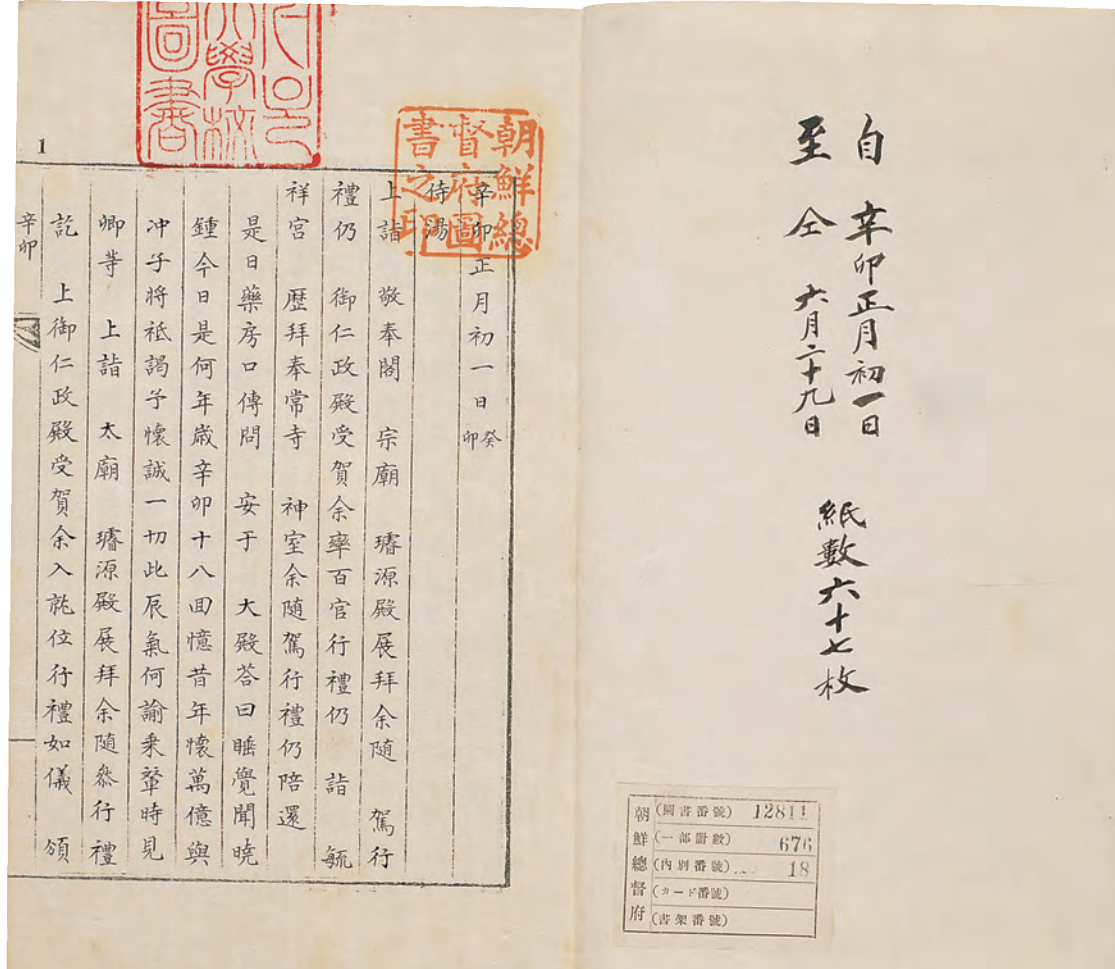 自 辛卯正月初一日
至 仝 六月二十九日
紙數六十七枚
朝鮮總督府
(圖書番號) 12811
(一部冊數) 676
(內別番號) 18
(カード番號)
(書架番號)
朝鮮總
督府圖
書之印
大學校
圖書
1
辛卯正月初一日癸卯
侍湯
上詣 敬奉閣 宗廟 璿源殿展拜余隨 駕行
禮仍 御仁政殿受賀余率百官行禮仍 詣 毓
祥宮 歷拜奉常寺 神室余隨駕行禮仍陪還
是日藥房口傳問 安于 大殿答曰睡覺聞曉
鍾今日是何年歲辛卯十八回憶昔年懷萬億與
冲子將祗謁予懷誠一切此辰氣何諭乘輦時見
卿等 上詣 太廟 璿源殿展拜余隨叅行禮
訖 上御仁政殿受賀余入就位行禮如儀 頒
辛卯